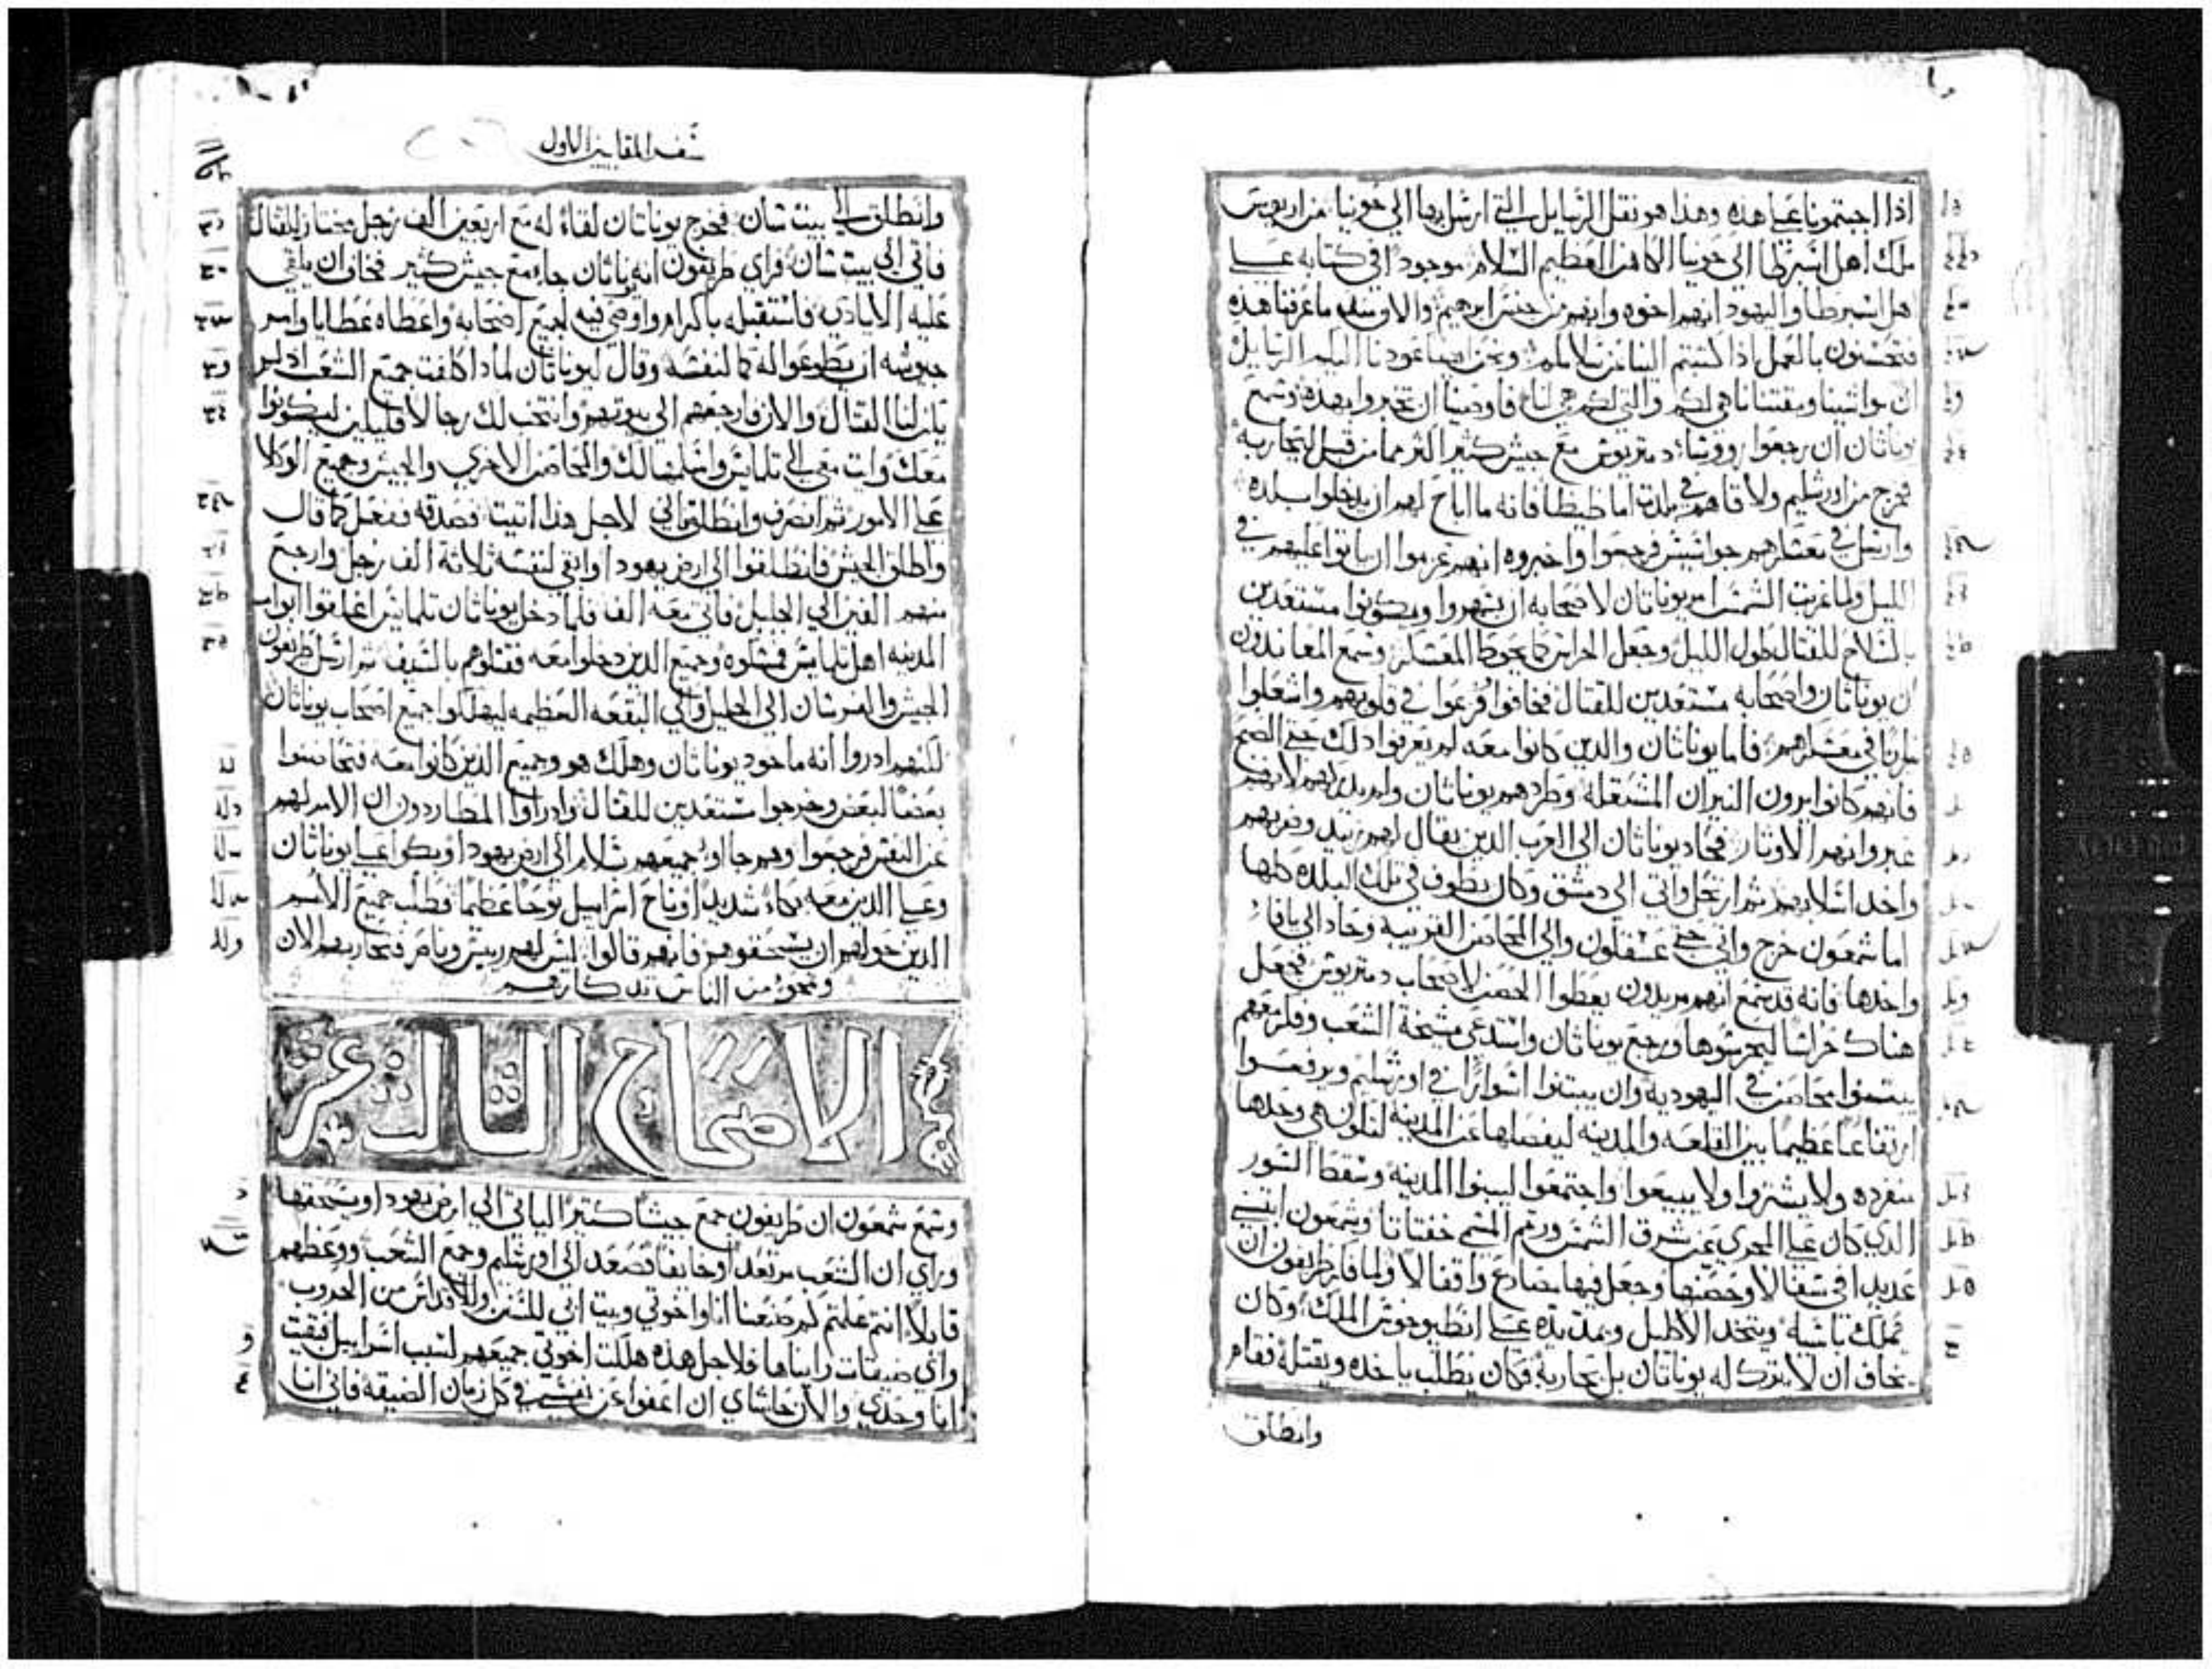 اذا اجبتمونا على هذه وهذا هو نقل الرسايل التي ارسل بها الى حونيا من اريوس
ملك اهل اسبرطا الى حونيا الكاهن العظيم السلام موجود في كتابه على
اهل اسبرطا واليهود انهم اخوه وانهم من جنس ابرهيم والان منذ ما عرفنا هذه
فتحسنون بالعمل اذا كتبتم الينا عن سلامكم ونحن ايضا عودنا اليكم الرسايل
ان مواشينا ومقتنانا هي لكم والتي لكم هي لنا فاوصينا ان تخبروا بهذه وسمع
يوناثان ان رجعوا روساء دمتريوس مع جيش كثير اكثر مما من قبل لتحاربه
فخرج من اورشليم ولاقاهم في بلدة اماطيطا فانه ما اباح لهم ان يدخلوا بلده
وارسل في معسكرهم جواسيس فرجعوا واخبروه انهم عزموا ان ياتوا عليهم في
الليل ولما غربت الشمس امر يوناثان لاصحابه ان يسهروا ويكونوا مستعدين
بالسلاح للقتال طول الليل وجعل الحراس كما يحوط المعسكر وسمع المعاندون
ان يوناثان واصحابه مستعدين للقتال فخافوا وفزعوا في قلوبهم واشعلوا
نارا في معسكرهم فاما يوناثان والذين كانوا معه لم يعرفوا ذلك حتى الصبح
فانهم كانوا يرون النيران المشتعله وطردهم يوناثان ولم يدركهم لانهم
عبروا نهر الاوثار فحاد يوناثان الى العرب الذين يقال لهم زبد وضربهم
واخذ اسلابهم ثم ارتحل واتى الى دمشق وكان يطوف في تلك البلده كلها
اما شمعون خرج واتى حتى عسقلون والى المحاصن القريبه وحاد الى يافا
واخذها فانه قد سمع انهم مريدون يعطوا الحصن لاصحاب دمتريوس فجعل
هناك حراسا ليحرسوها ورجع يوناثان واستدعى مشيخة الشعب وفكر معهم
يبتنوا محاصن في اليهوديه وان يبتنوا اسوارا في اورشليم ويرفعوا
ارتفاعا عظيما بين القلعه والمدينه ليفصلها عن المدينه لتكون هي وحدها
منفرده ولا يشتروا ولا يبيعوا واجتمعوا ليبنوا المدينه وسقط السور
الذي كان على المجرى عن شرق الشمس ورمم المسمى خفتاتا وشمعون ابتنى
عديدا في سفالا وحصنها وجعل فيها مصارع واقفالا ولما فكر طريفون ان
يملك باسيه ويتخذ الاكليل ويمد يده على انطيوخوش الملك وكان
يخاف ان لا يترك له يوناثان بل يحاربه فكان يطلب ياخذه ويقتله فقام
وانطلق
سفر المقابيين الاول
وانطلق الى بيت شان فخرج يوناثان لقاء له مع اربعين الف رجل مختار للقتال
فاتى الى بيت شان فراى طريفون انه يوناثان جا مع جيش كثير فخاف ان يلقي
عليه الايادي فاستقبله باكرام واوصى فيه لجميع اصحابه واعطاه عطايا وامر
جيوشه ان يطوعوا له كما لنفسه وقال ليوناثان لماذا كلفت جميع الشعب اذ لم
يكن لنا القتال والان فارجعهم الى بيوتهم وانتخب لك رجالا قليلين ليكونوا
معك وات معي الى تلمايس واسلمها لك والمحاصن الاخرى والجيش وجميع الوكلا
على الامور ثم انصرف وانطلق لاني لاجل هذا اتيت فصدقه ففعل كما قال
واطلق الجيش فانطلقوا الى ارض يهودا وابقى لنفسه ثلاثة الف رجل وارجع
منهم الفين الى الجليل فاتى معه الف فلما دخل يوناثان تلمايس اغلقوا ابواب
المدينه اهل تلمايس فمسكوه وجميع الذين دخلوا معه فقتلوهم بالسيف ثم ارسل طريفون
الجيش والفرسان الى الجليل والى البقعه العظيمه ليهلكوا جميع اصحاب يوناثان
لكنهم ادروا انه ماخوذ يوناثان وهلك هو وجميع الذين كانوا معه فتحانسوا
بعضا لبعض وخرجوا مستعدين للقتال وادراوا المطاردون ان الامر لهم
عن النفس فرجعوا وهم جاوا جميعهم بسلام الى ارض يهودا وبكوا على يوناثان
وعلى الذين معه بكاء شديدا وناح اسراييل نوحا عظيما فطلب جميع الامم
الذين حولهم ان يسحقوهم فانهم قالوا ليس لهم رييس وناصر فنحاربهم الان
ونمحو من الناس تذكارهم
الاصحاح الثالث عشر
وسمع شمعون ان طريفون جمع جيشا كثيرا لياتي الى ارض يهودا ويسحقها
وراى ان الشعب مرتعدا وخايفا فصعد الى اورشليم وجمع الشعب ووعظهم
قايلا انتم علمتم كم صنعنا انا واخوتي وبيت ابي للسنن والاقداس من الحروب
واي ضيقات رايناها فلاجل هذه هلكت اخوتي جميعهم لسبب اسراييل فبقيت
انا وحدي والان حاشاي ان اعفوا عن نفسي في كل زمان الضيقه فاني انا